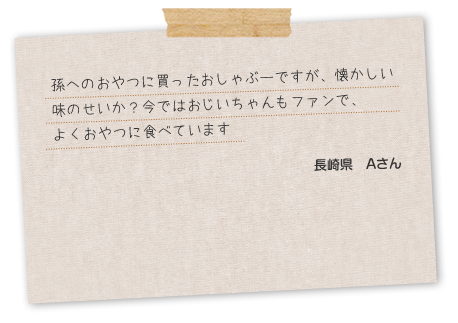 孫へのおやつに買ったおしゃぶーですが、懐かしい
味のせいか？今ではおじいちゃんもファンで、
よくおやつに食べています
長崎県　Aさん